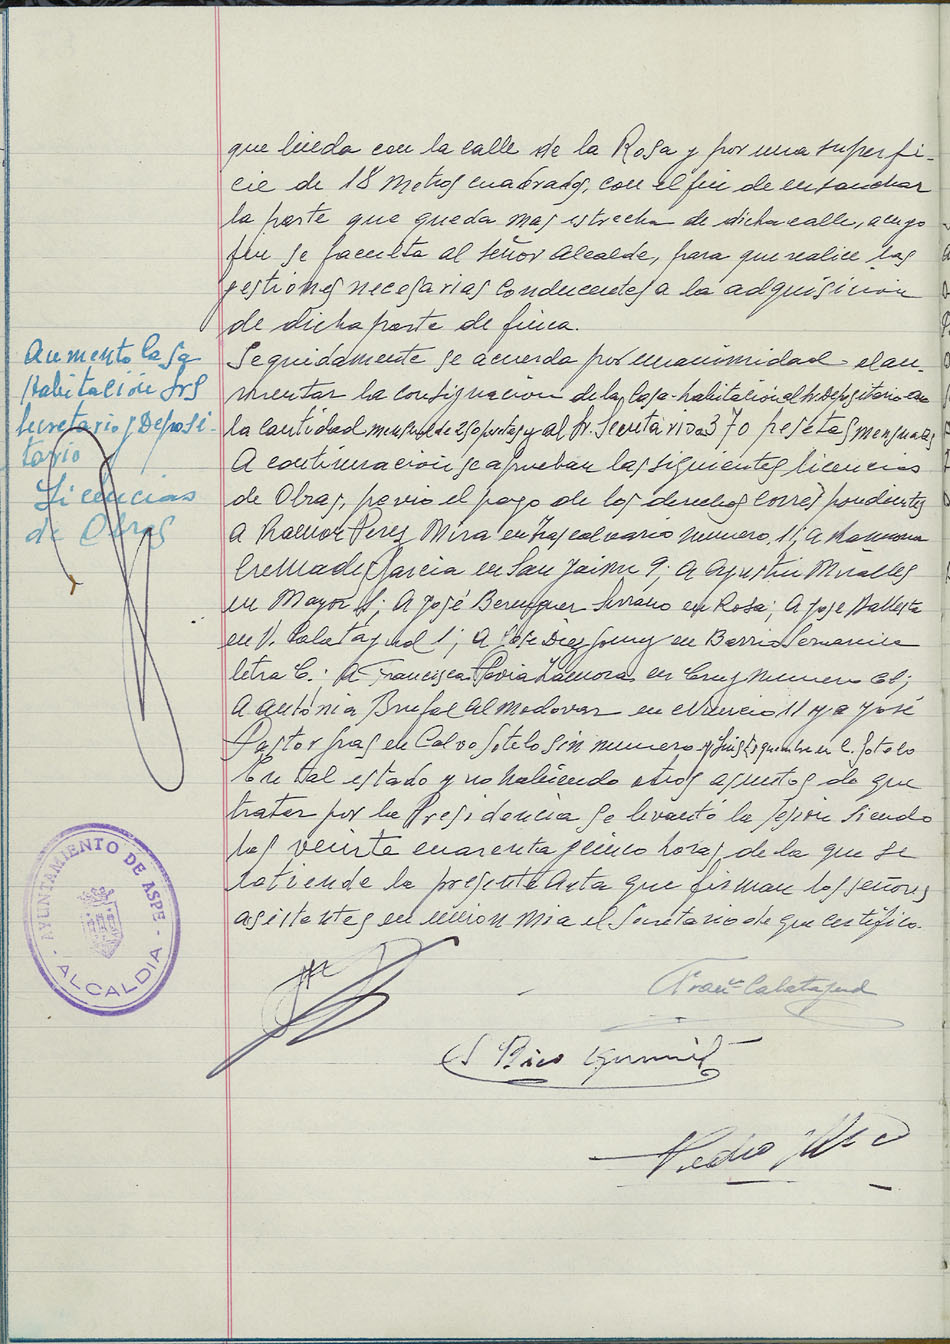 que linda con la calle de la Rosa y por una superfi-
cie de 18 Metros cuadrados, con el fin de ensanchar
la parte que queda mas estrecha de dicha calle, a cuyo
fin se faculta al señor Alcalde, para que realice las
gestiones necesarias conducentes a la adquisición
de dicha parte de finca.
Aumento Casa
Habitación Srs
Secretario y Deposi-
tario
Seguidamente se acuerda por unanimidad el au-
mentar la consignacion de la Casa-habitación al Sr Depositario en
la cantidad mensual de 250 pesetas y al Sr. Secretario a 370 pesetas mensuales
Licencias
de Obras
A continuacion se aprueban las siguientes licencias
de Obras, previo el pago de los derechos correspondientes
a Ramon Perez Mira en Tras calvario numero, 11; a Ramona
Cremades Garcia en San Jaime 9; A Agustin Miralles
en Mayor; A José Berenguer Serrano en Rosa; A Jose Ballesta
en V. Calatayud 1; A José Diez Gomez en Barrio
letra C.; A Francisca Pavia Zamora en Cruz numero;
A Antonia Brufal Almodovar en 11 y a José
Pastor en Calvo Sotelo sin numero y en C. Sotelo
En tal estado y no habiendo otros asuntos de que
tratar por la Presidencia se levantó la sesion siendo
las veinte cuarenta y cinco horas, de la que se
extiende la presente Acta que firman los señores
asistentes en union mia el Secretario de que certifico.
AYUNTAMIENTO DE ASPE
- ALCALDIA -
Franco Calatayud
Pedro